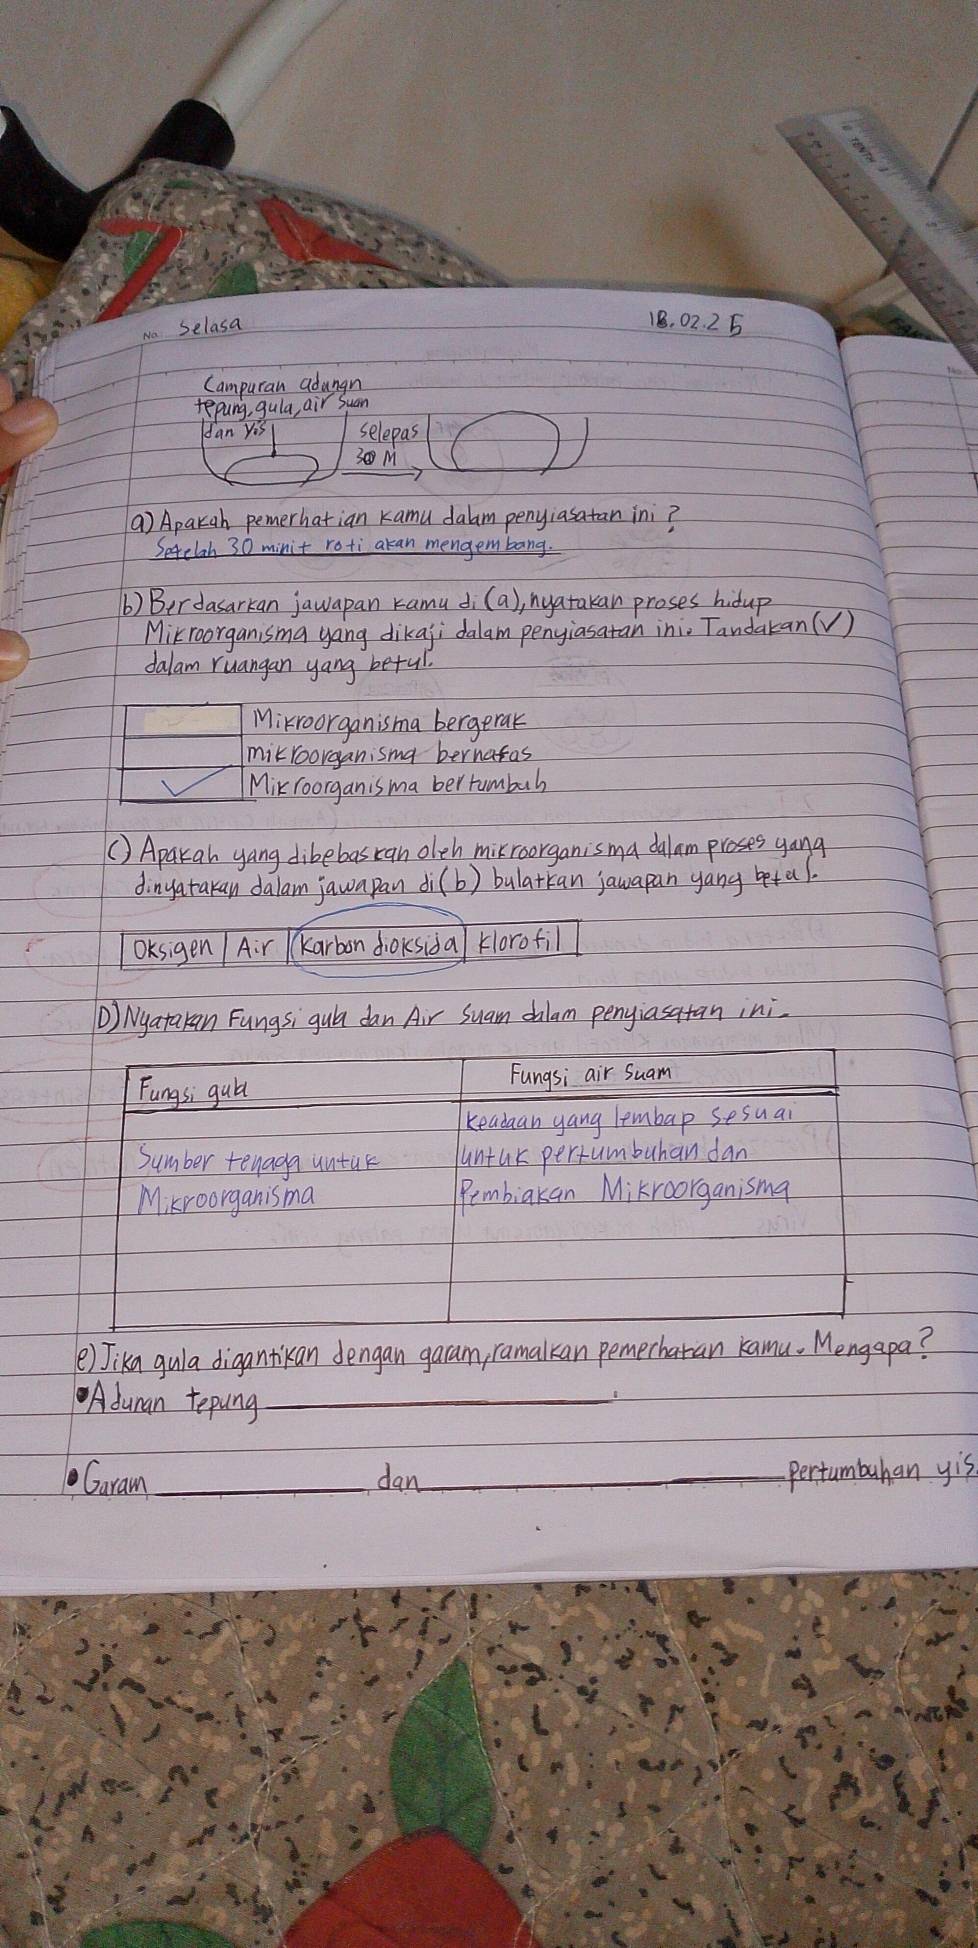 No. Selasa
18.02.25
Campuran adungn
tepung, gula, air Suan
dan yis
selepas
30 M
a) Apakah pemerhatian kamu dalam penyiasatan ini?
Setelah 30 minit roti akan mengembang.
b) Berdasarkan jawapan kamu di (a), nyatakan proses hidup
Mikroorganisma yang dikaji dalam penyiasatan ini. Tandakan (√)
dalam ruangan yang betul.
Mikroorganisma bergerak
mikroorganisma bernafas
✓ Mikroorganisma bertumbuh
c) Apakah yang dibebaskan oleh mikroorganisma dalam proses yang
dinyatakan dalam jawapan di (b) bulatkan jawapan yang betul.
Oksigen Air Karbon dioksida Klorofil
D) Nyatakan Fungsi gula dan Air Suam dalam penyiasatan ini.
Fungsi gula Fungsi air Suam
Sumber tenaga untuk
Mikroorganisma
Keadaan yang lembap sesuai
untuk pertumbuhan dan
Pembiakan Mikroorganisma
e) Jika gula digantikan dengan garam, ramalkan pemerhatian kamu. Mengapa?
• Adunan tepung ____________.
• Garam ____________ dan ____________ pertumbuhan yis.